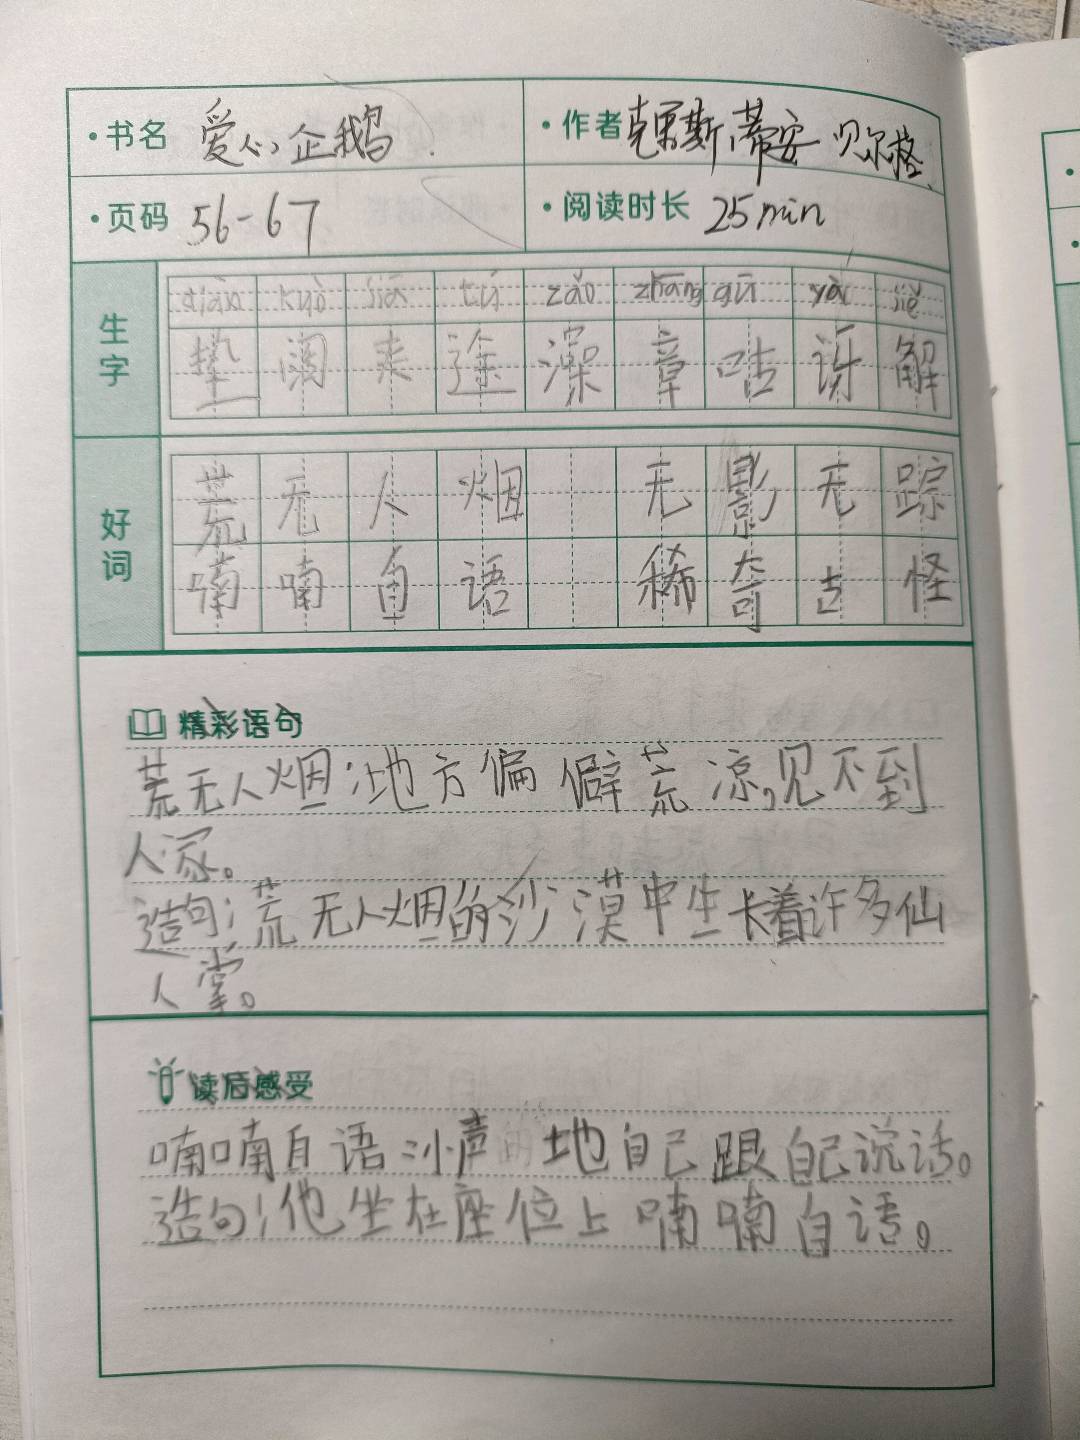 ·书名 爱心企鹅 ·作者 克里斯蒂安 贝尔格
·页码 56-67 ·阅读时长 25min
diàn kuò jiā tú zǎo zhāng gū yà jiě
生字 垫 阔 夹 途 澡 章 咕 讶 解
好词 荒无人烟 无影无踪
喃喃自语 稀奇古怪
精彩语句
荒无人烟:地方偏僻荒凉,见不到
人家。
造句:荒无人烟的沙漠中生长着许多仙
人掌。
读后感受
喃喃自语:小声地自己跟自己说话。
造句:他坐在座位上喃喃自语。